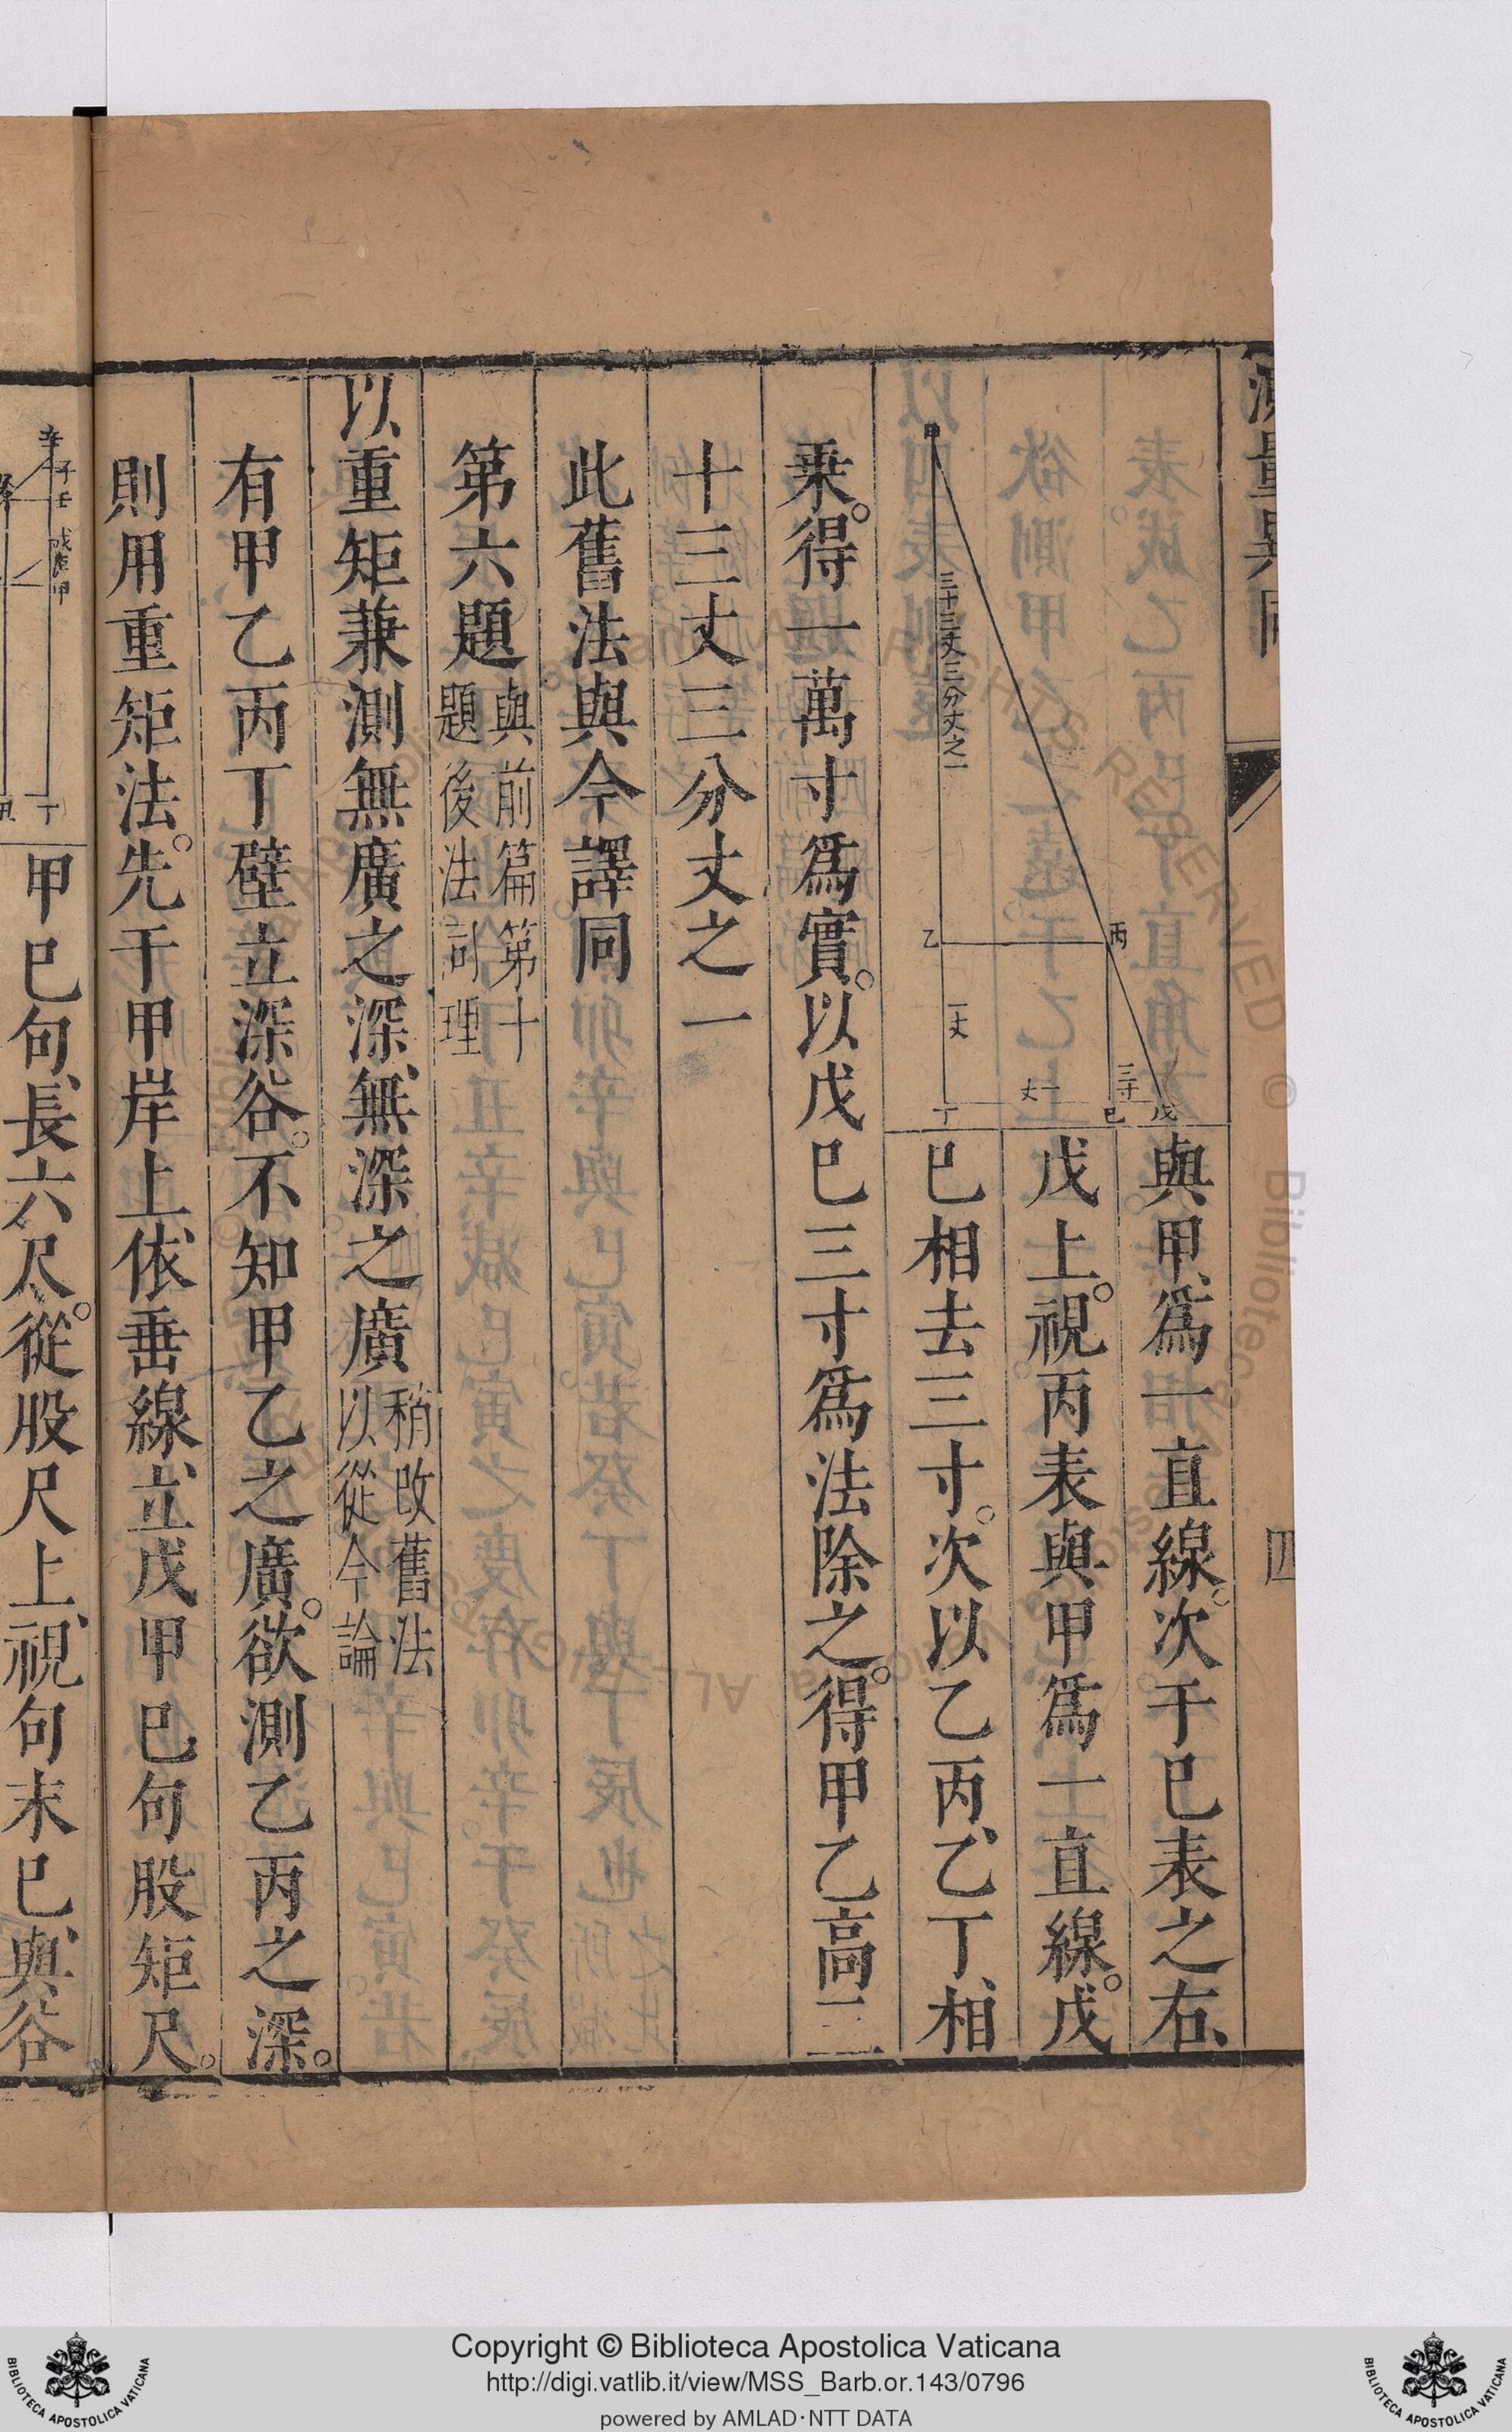 測量異同
四
甲
三十三丈三分丈之一
乙
丙
一丈
三寸
一丈
丁
巳
戊
與甲、爲一直線。次于巳表之右、
戊上。視丙表與甲爲一直線。戊
巳相去三寸。次以乙丙、乙丁、相
乗。得一萬寸爲實。以戊巳三寸爲法除之。得甲乙高三
十三丈三分丈之一
此舊法與今譯同
第六題 與前篇第十
題後法同理
以重矩兼測無廣之深、無深之廣 稍改舊法
以從今論
有甲乙丙丁壁立深谷。不知甲乙之廣。欲測乙丙之深。
則用重矩法。先于甲岸上、依垂線、立戊甲巳句股矩尺。
辛
子
壬
戊
庚
甲
癸
丁
丑
甲巳句、長六尺。從股尺上、視句末巳、與谷
Copyright © Biblioteca Apostolica Vaticana
http://digi.vatlib.it/view/MSS_Barb.or.143/0796
powered by AMLAD·NTT DATA
BIBLIOTECA APOSTOLICA VATICANA
BIBLIOTECA APOSTOLICA VATICANA